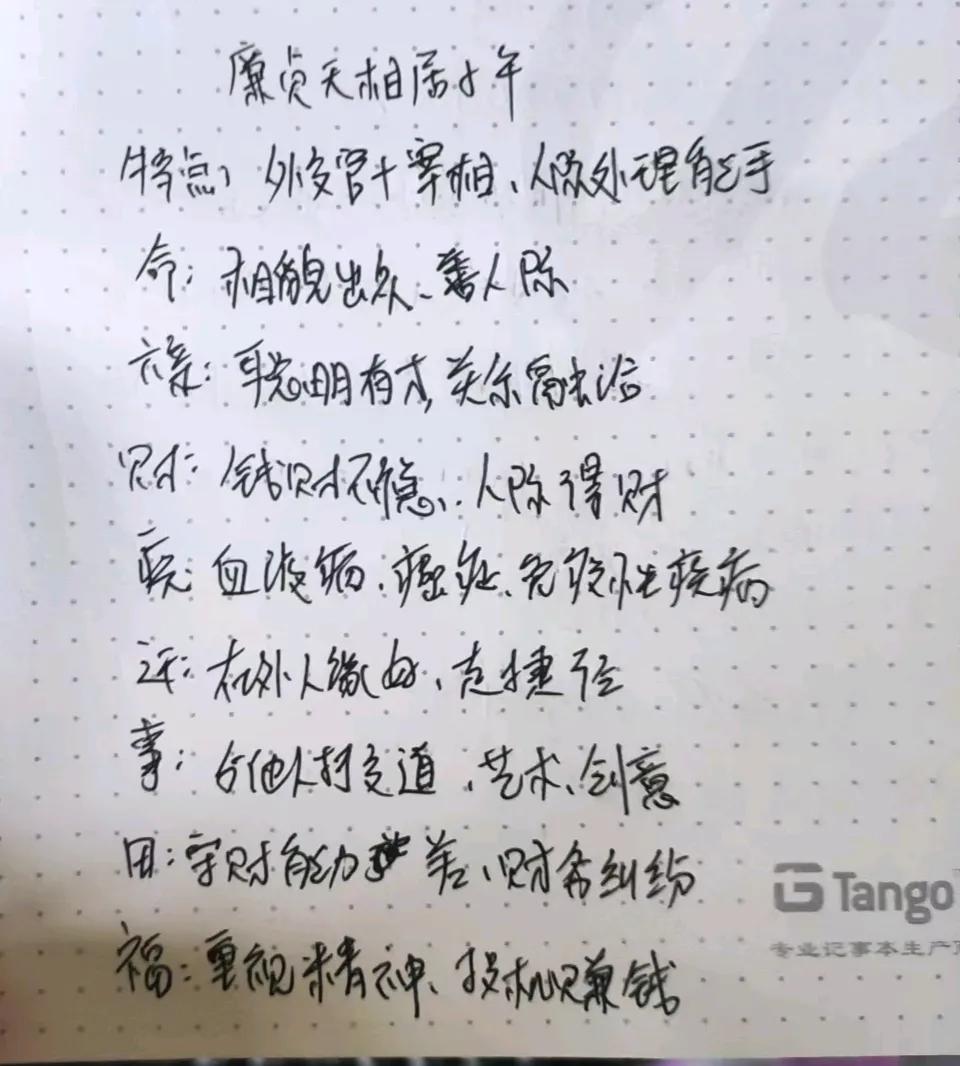 廉贞天相居子午
特点：外交官+宰相、人际处理能手
命：相貌出众、善人际
六亲：聪明有才，关系融洽
财：钱财不稳、人际得财
疾：血液病、癌症、免疫性疾病
迁：在外人缘好、走捷径
事：与他人打交道、艺术、创意
田：守财能力差、财务纠纷
福：重视精神、投机赚钱
Tango
专业记事本生产